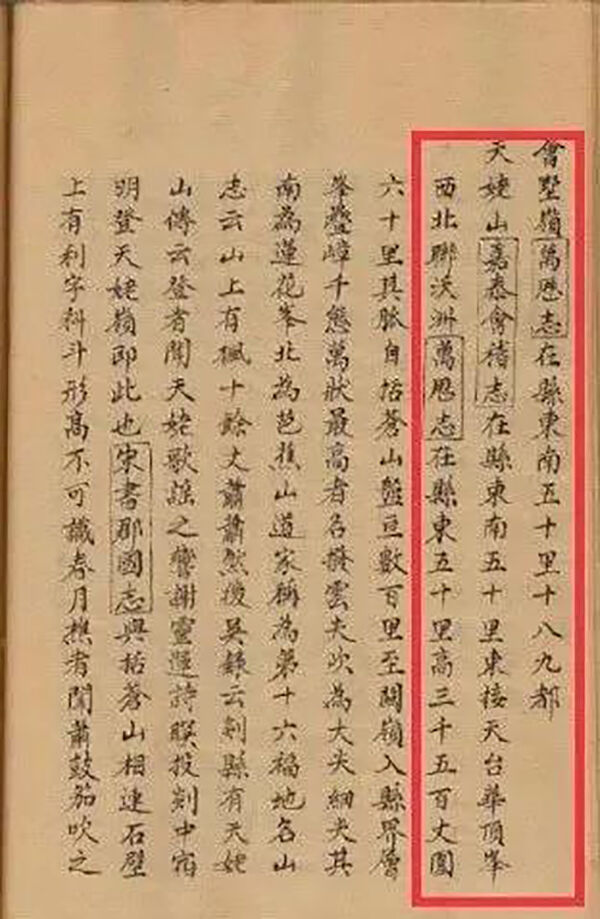 會墅嶺萬厯志在縣東南五十里十八九都
天姥山嘉泰會稽志在縣東南五十里東接天台華頂峯
西北聯沃洲萬厯志在縣東五十里高三千五百丈圍
六十里其脈自括蒼山盤亘數百里至關嶺入縣界層
峯疊嶂千態萬狀最高者名撥雲尖次為大尖細尖其
南為蓮花峯北為芭蕉山道家稱為第十六福地名山
志云山上有楓十餘丈蕭蕭然後吳錄云剡縣有天姥
山傳云登者聞天姥歌謡之響謝靈運詩暝投剡中宿
明登天姥嶺即此也宋書郡國志與括蒼山相連石壁
上有刋字科斗形高不可識春月樵者聞蕭鼓笳吹之